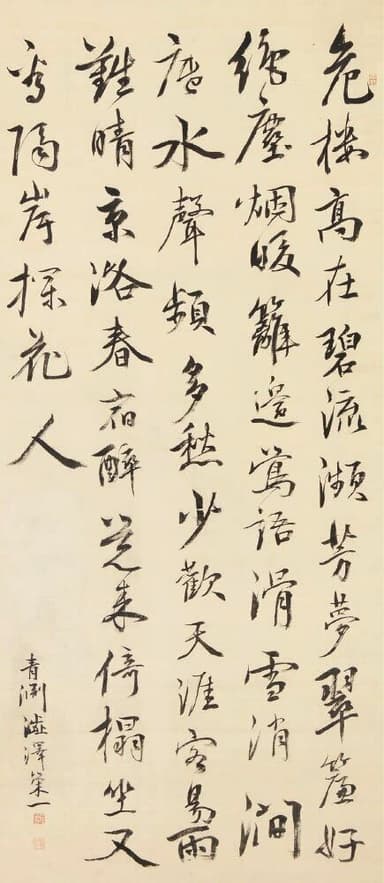 危楼高在碧流瀕芳夢翠簾好
絶塵烟暖籬邊鶯語滑雪消澗
底水聲頻多愁少歡天涯客易雨
難晴京洛春宿醉覚来倚榻坐又
看隔岸探花人
青渊澁澤榮一